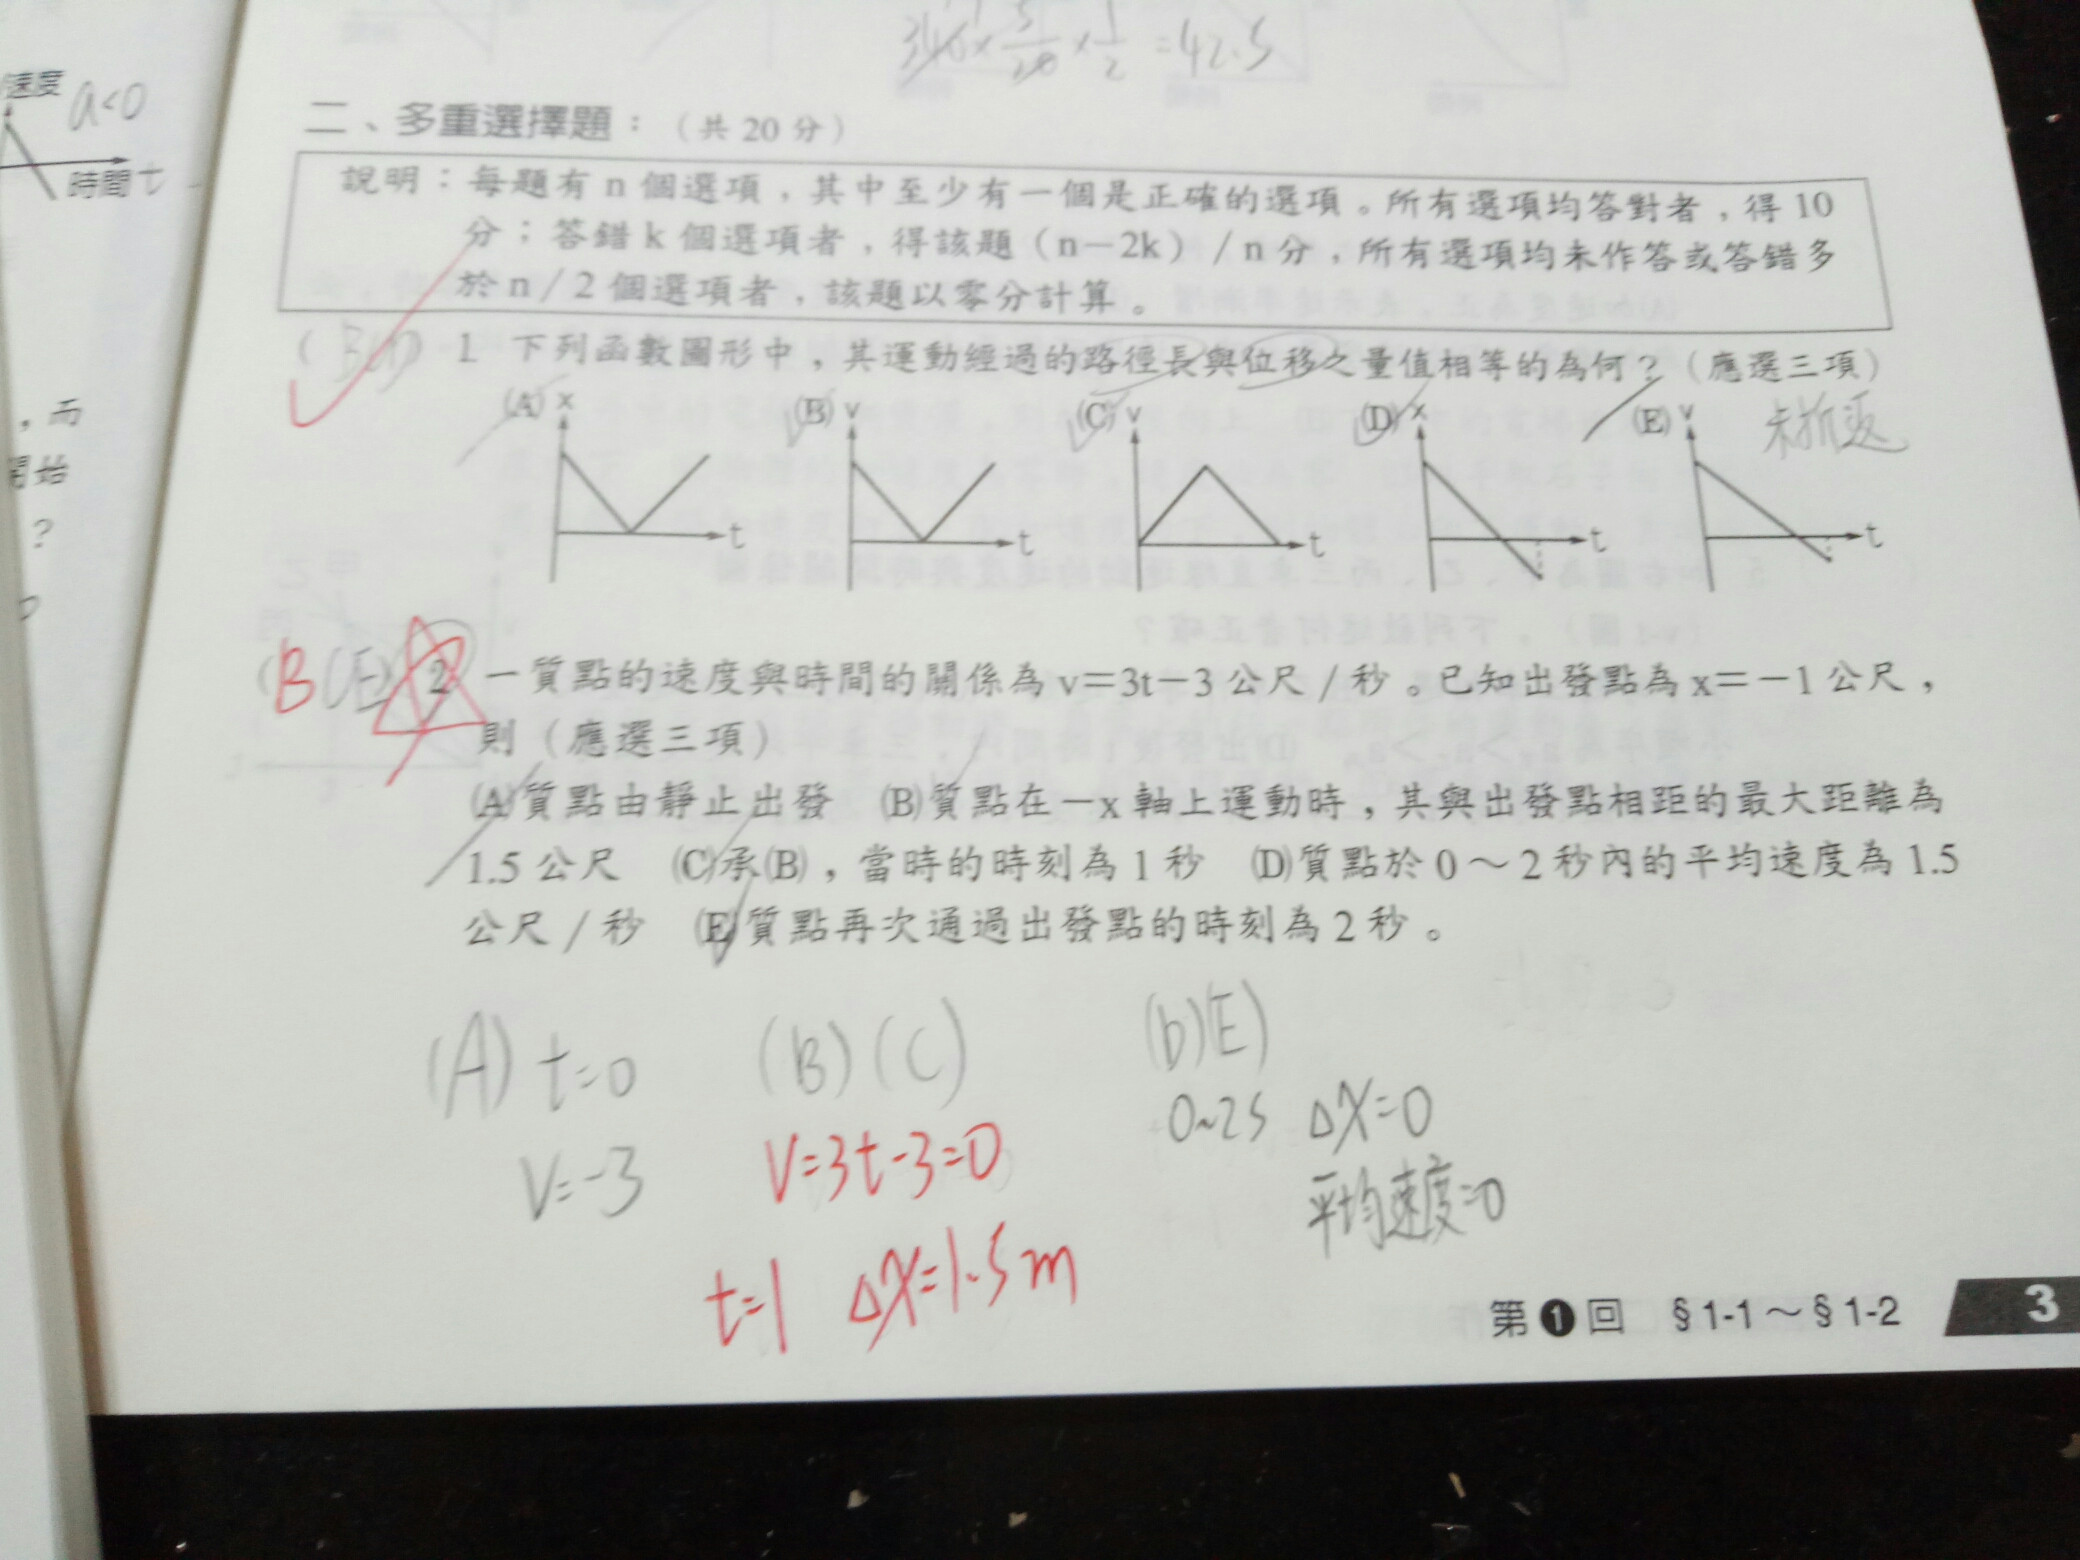 速度 a<0
時間 t
，而
開始
？
340× 5/20 × 1/2 =42.5
二、多重選擇題：（共 20 分）
說明：每題有 n 個選項，其中至少有一個是正確的選項。所有選項均答對者，得 10
分；答錯 k 個選項者，得該題（n－2k）/ n 分，所有選項均未作答或答錯多
於 n / 2 個選項者，該題以零分計算。
(BCD) 1 下列函數圖形中，其運動經過的路徑長與位移之量值相等的為何？（應選三項）
(A) x (B) v (C) v (D) x (E) v 未折返
t t t t t
(BCE) 2 一質點的速度與時間的關係為 v＝3t－3 公尺 / 秒。已知出發點為 x＝－1 公尺，
則（應選三項）
(A)質點由靜止出發 (B)質點在－x 軸上運動時，其與出發點相距的最大距離為
1.5 公尺 (C)承(B)，當時的時刻為 1 秒 (D)質點於 0～2 秒內的平均速度為 1.5
公尺 / 秒 (E)質點再次通過出發點的時刻為 2 秒。
(A) t=0 (B)(C) (D)(E)
v=-3 v=3t-3=0 0~2s Δx=0
t=1 Δx=1.5m 平均速度=0
第1回 §1-1～§1-2 3